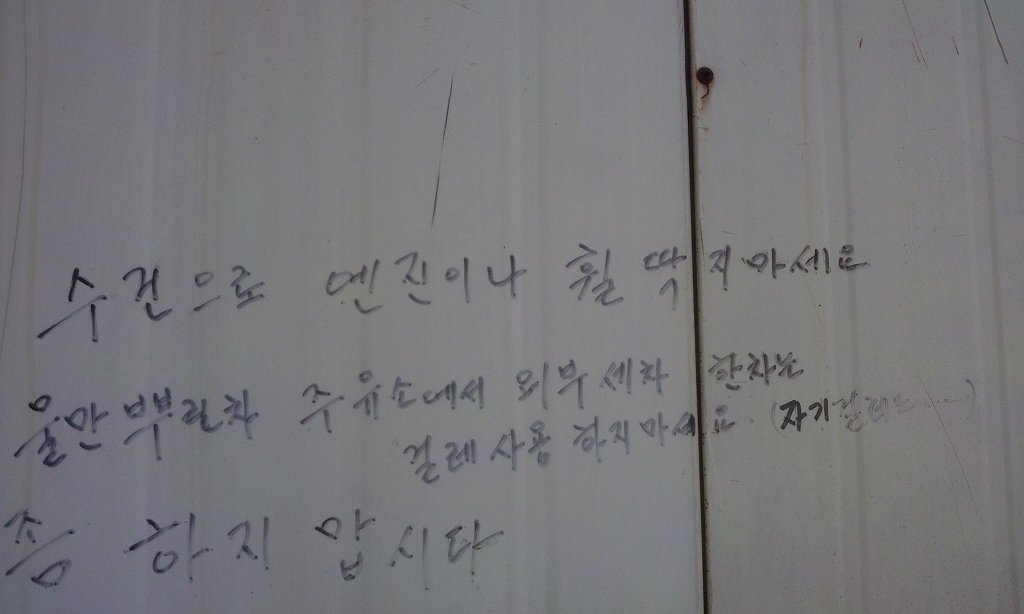 수건으로 엔진이나 휠 딱지마세요
물만 뿌린차 주유소에서 외부세차 한차는
걸레사용하지마세요. (자기걸레는...)
좀 하지 맙시다